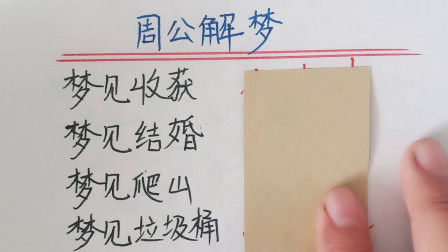 周公解梦
梦见收获
梦见结婚
梦见爬山
梦见垃圾桶